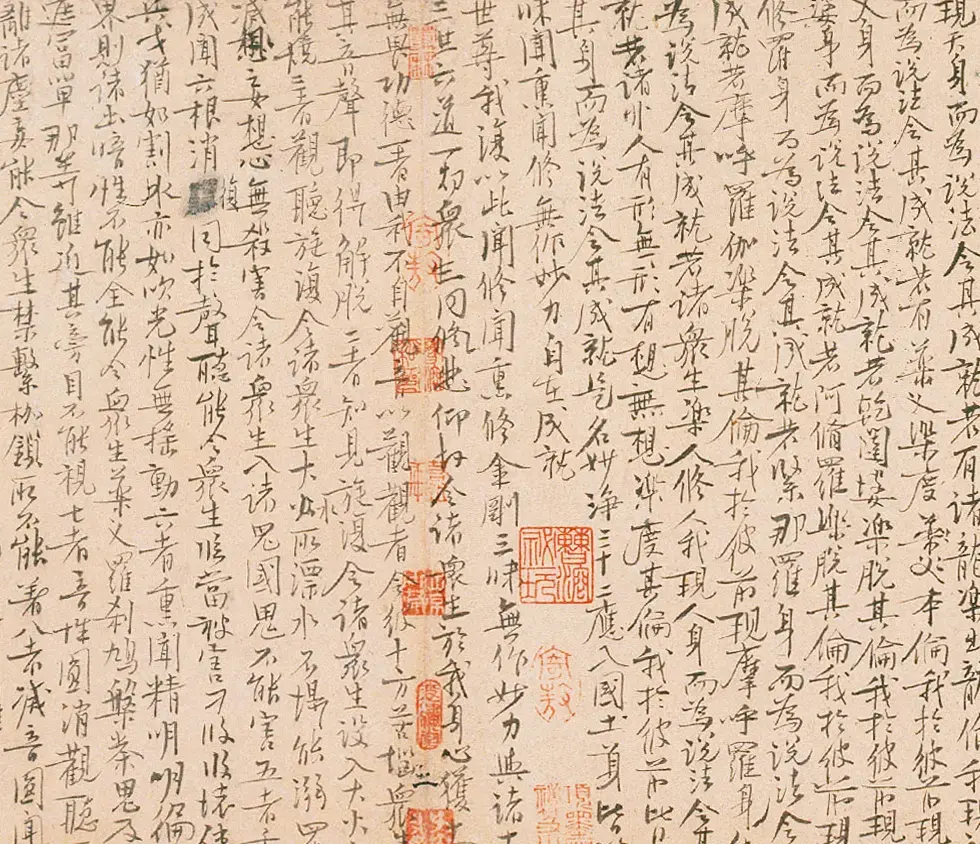 現天身而為說法令其成就若有諸龍樂出龍倫我
而為說法令其成就若有藥叉樂度藥叉本倫我於彼前現
叉身而為說法令其成就若乾闥婆樂脫其倫我於彼前現
婆身而為說法令其成就若阿脩羅樂脫其倫我於彼前現
修羅身而為說法令其成就若緊那羅身而為說法令
成就若摩呼羅伽樂脫其倫我於彼前現摩呼羅身
為說法令其成就若諸眾生樂人修人我現人身而為說法令其
就若諸非人有形無形有想無想樂度其倫我於彼前皆
其身而為說法令其成就是名妙淨三十二應入國土身皆
昧聞熏聞修無作妙力自在成就
世尊我復以此聞修聞熏修金剛三昧無作妙力與諸十
三世六道一切眾生同修悲仰故令諸眾生於我身心獲十
無畏功德一者由我不自觀音以觀觀者令彼十方苦惱眾生
其音聲即得解脫二者知見旋復令諸眾生設入大火
能燒三者觀聽旋復令諸眾生大水所漂水不能溺四
滅想妄想心無殺害令諸眾生入諸鬼國鬼不能害五者
成聞六根消復同於聲聽能令眾生臨當被害刀段段壞使
兵戈猶如割水亦如吹光性無搖動六者熏聞精明明徧
界則諸幽暗性不能全能令眾生藥叉羅剎鳩槃荼鬼及
遮富單那等雖近其旁目不能視七者音性圓消觀聽
離諸塵妄能令眾生禁繫枷鎖所不能著八者滅音圓聞